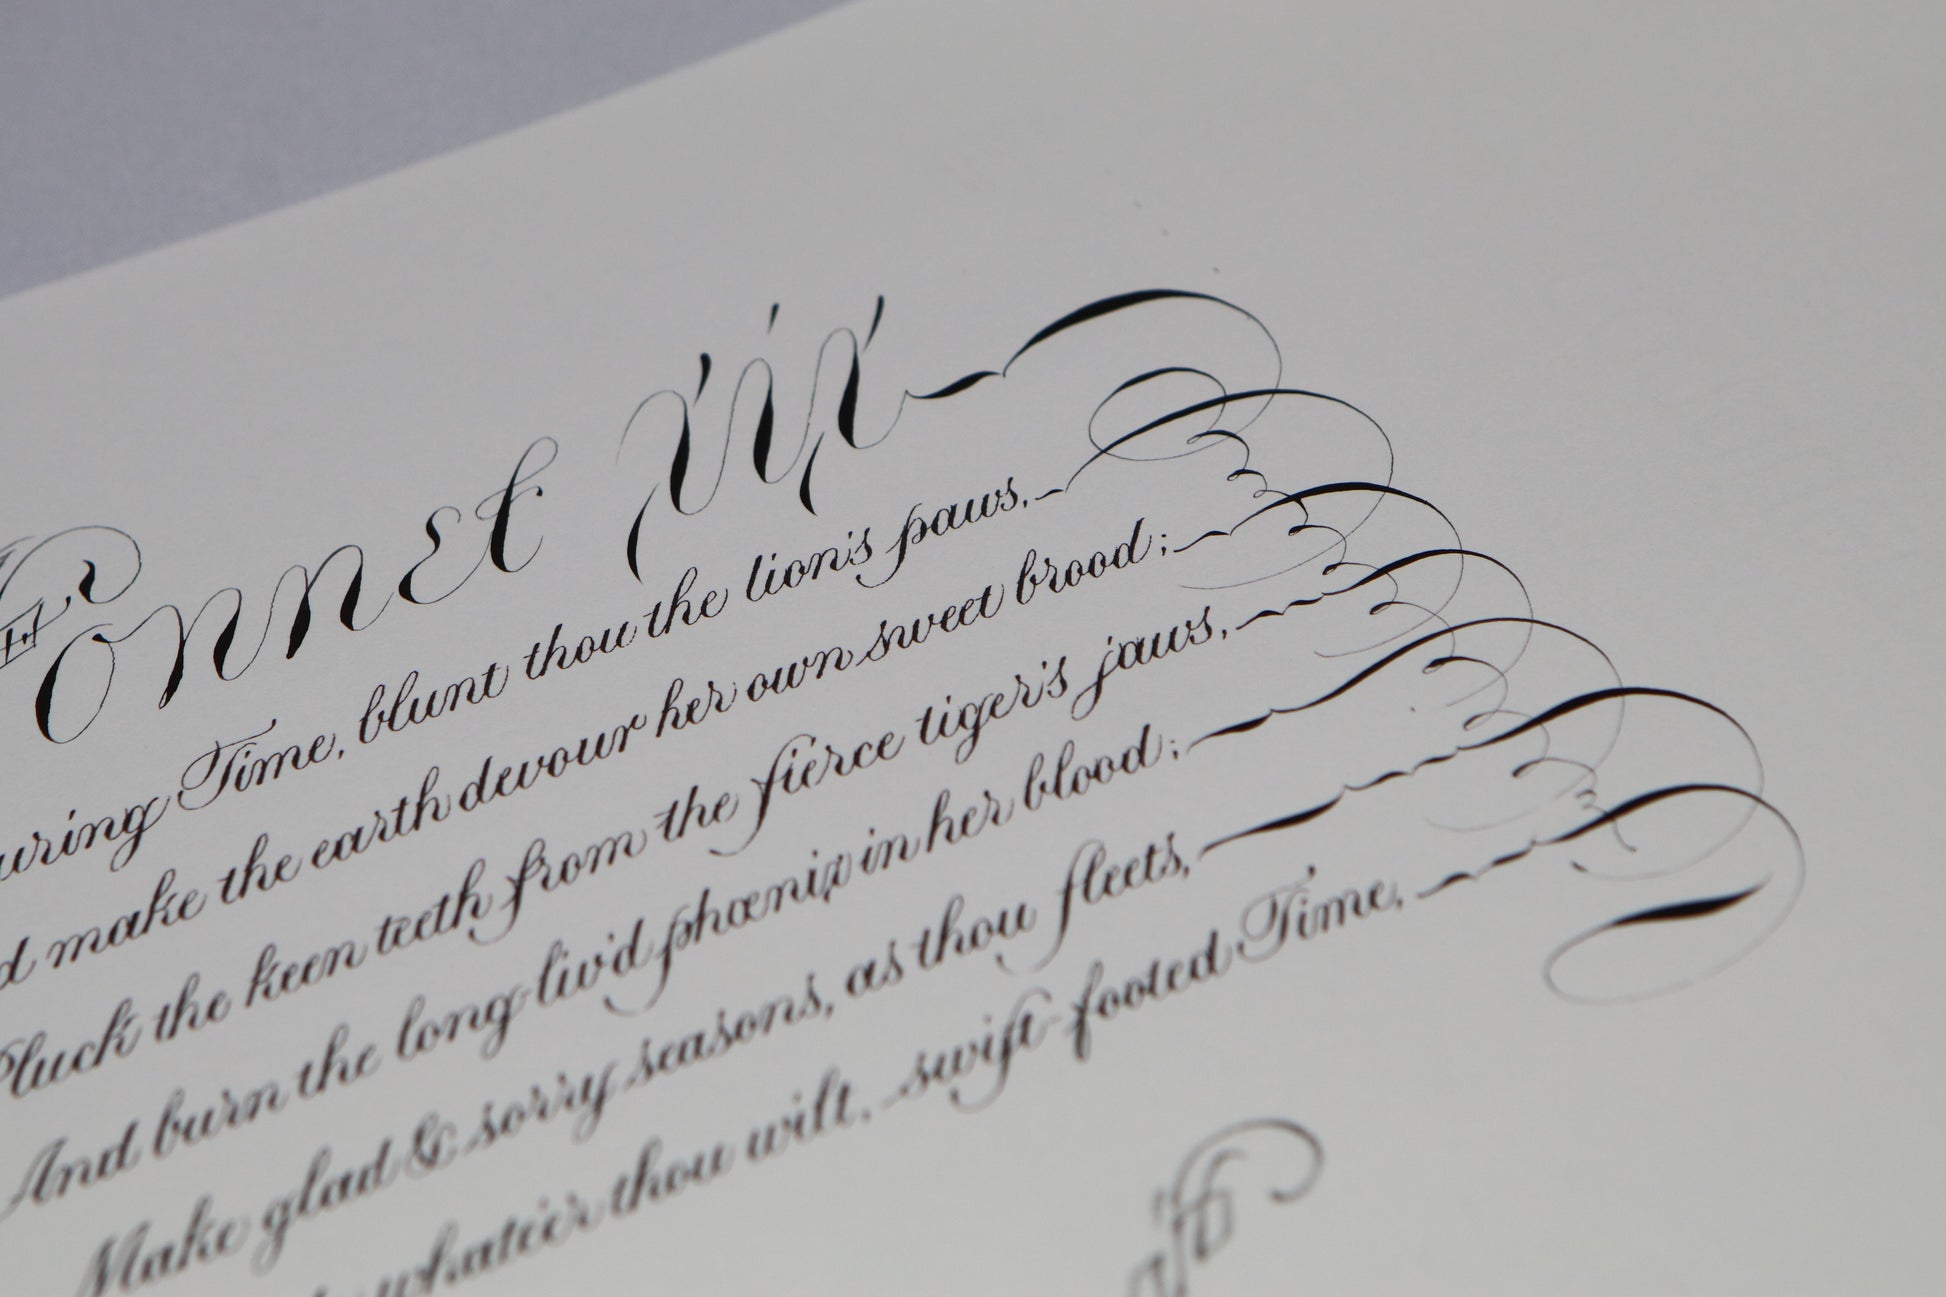 ONNET XIX
uring Time, blunt thou the lion's paws,
d make the earth devour her own sweet brood;
Pluck the keen teeth from the fierce tiger's jaws,
And burn the long-liv'd phœnix in her blood;
Make glad & sorry seasons, as thou fleets,
whate'er thou wilt, swift-footed Time,